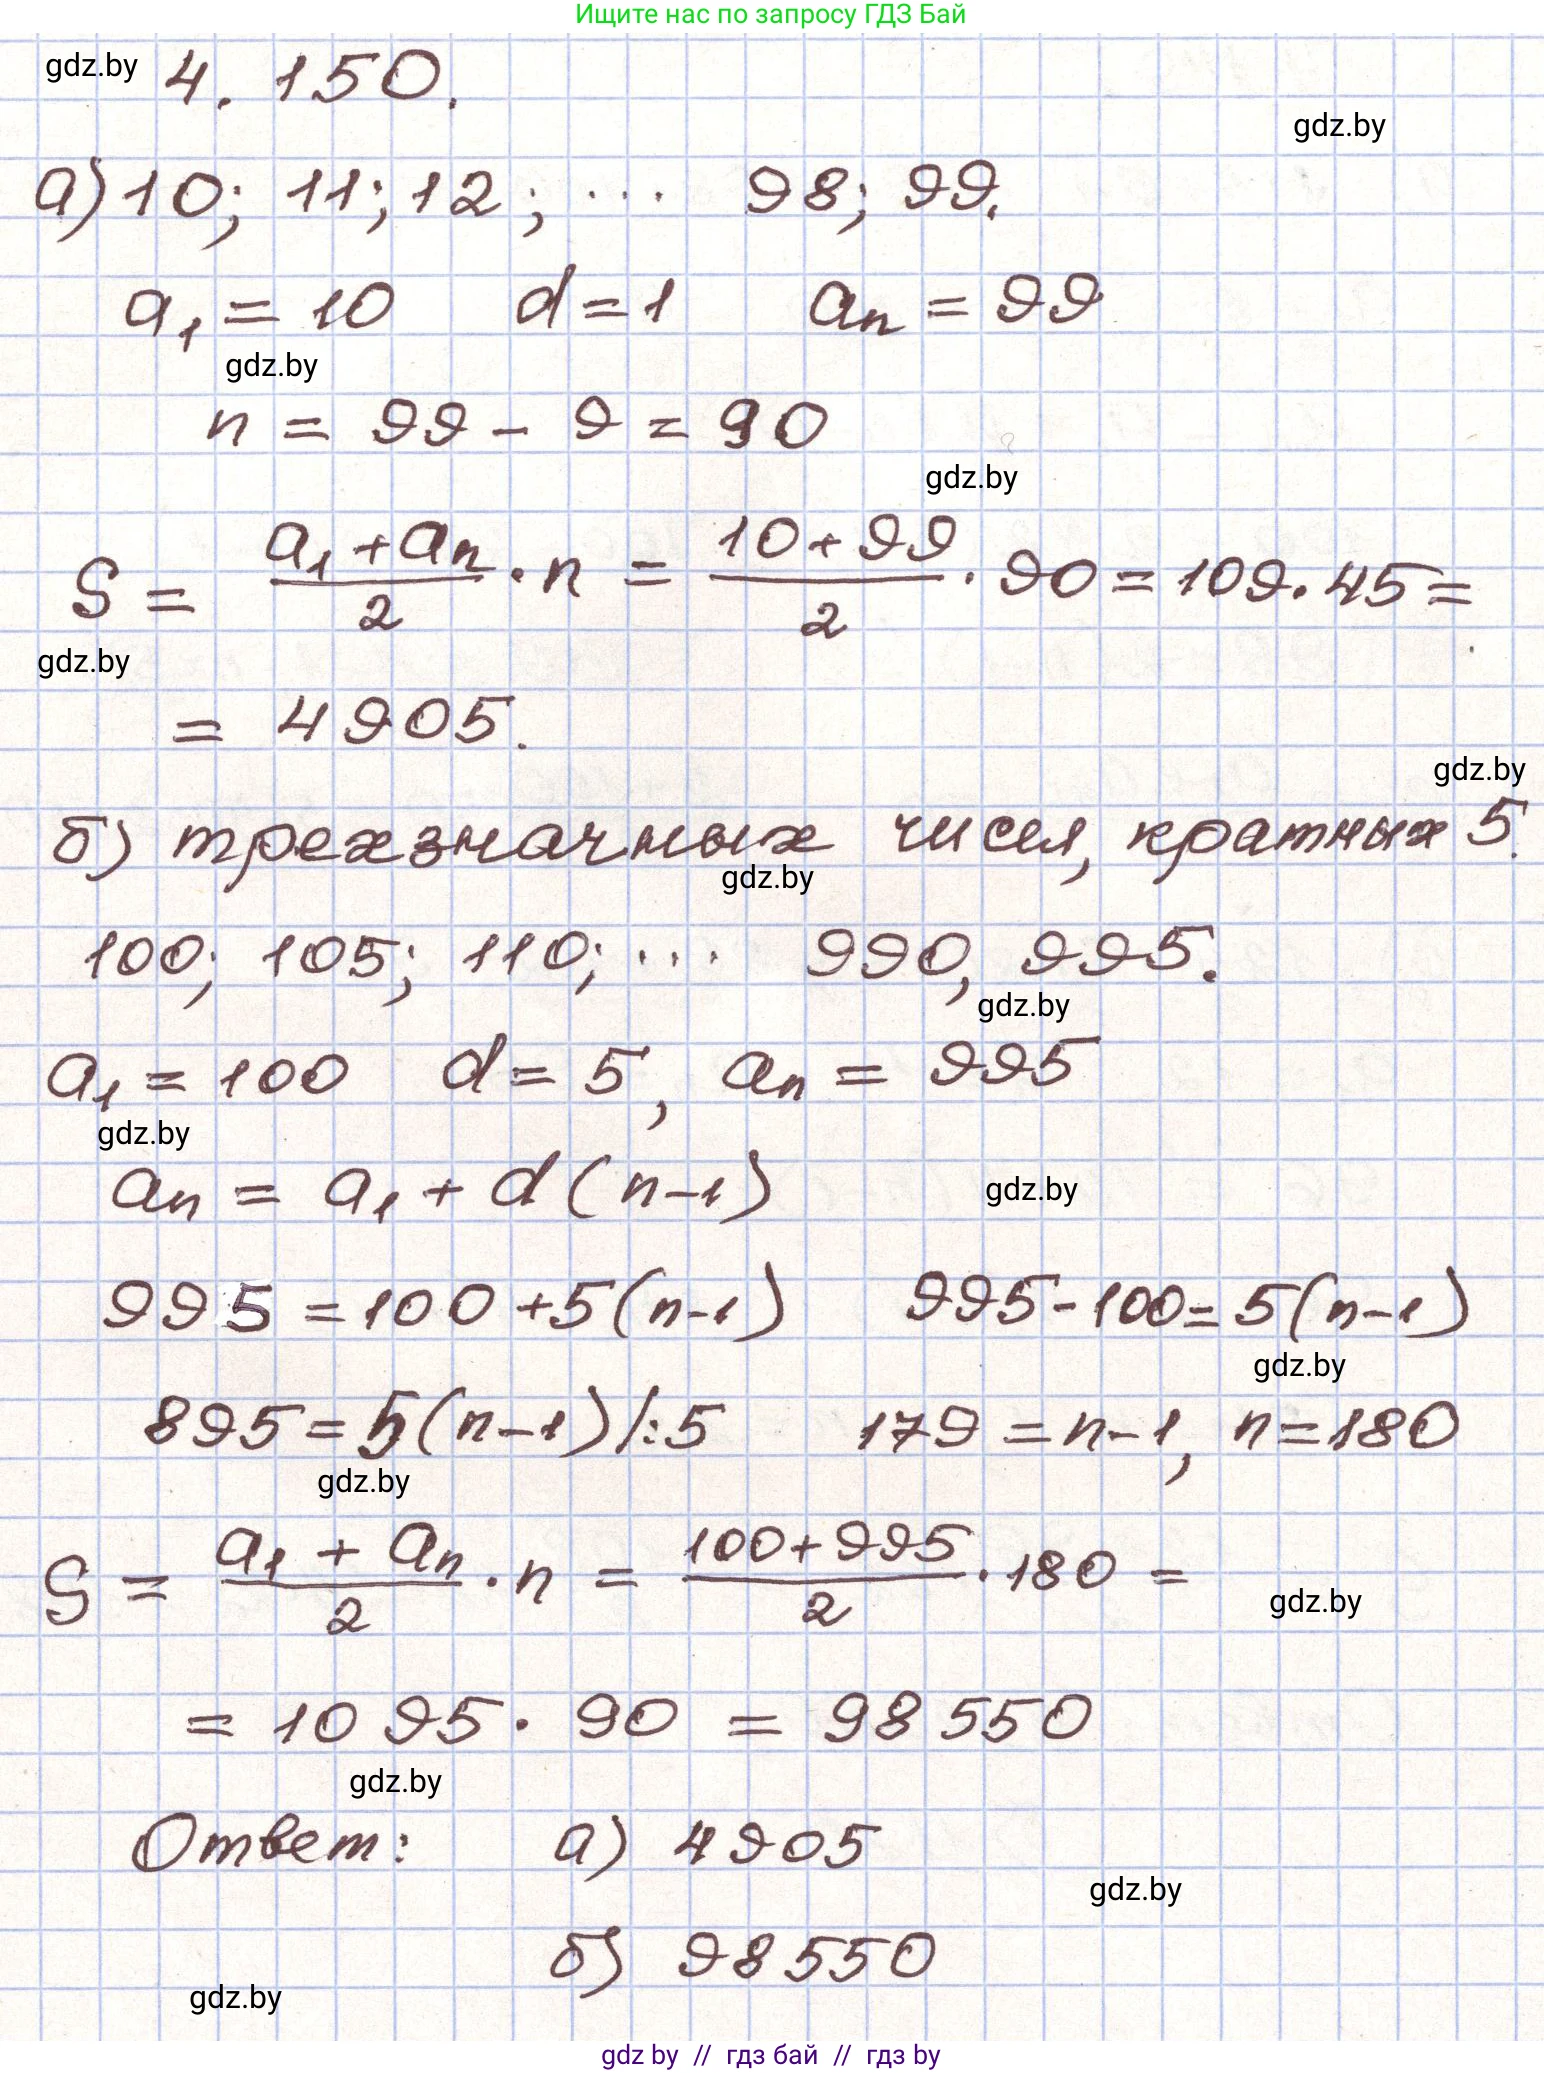 Ищите нас по запросу ГДЗ Бай
gdz.by 4.150.
gdz.by
а) 10; 11; 12; ... 98; 99.
a₁ = 10 d = 1 aₙ = 99
gdz.by
n = 99 - 9 = 90
gdz.by
S = (a₁ + aₙ)/2 · n = (10 + 99)/2 · 90 = 109 · 45 =
gdz.by
= 4905.
gdz.by
б) трехзначных чисел, кратных 5.
gdz.by
100; 105; 110; ... 990, 995.
gdz.by
a₁ = 100 d = 5, aₙ = 995
gdz.by
aₙ = a₁ + d(n-1)
gdz.by
995 = 100 + 5(n-1) 995 - 100 = 5(n-1)
gdz.by
895 = 5(n-1) |:5 179 = n-1, n = 180
gdz.by
S = (a₁ + aₙ)/2 · n = (100 + 995)/2 · 180 =
gdz.by
= 1095 · 90 = 98550
gdz.by
Ответ: а) 4905
gdz.by
б) 98550
gdz.by
gdz by // гдз бай // гдз by